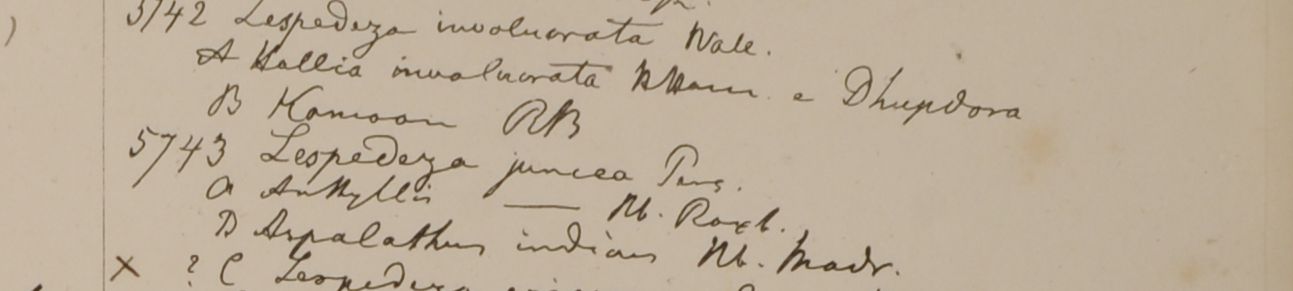 5742 Lespedeza involucrata Wall.
A Hallia involucrata Ham. e Dhupdora
B Kamoon RB
5743 Lespedeza juncea Pers.
a Anthyllis — Hb. Roxb.
B Aspalathus indicus Hb. Madr.
x ? C Lespedeza